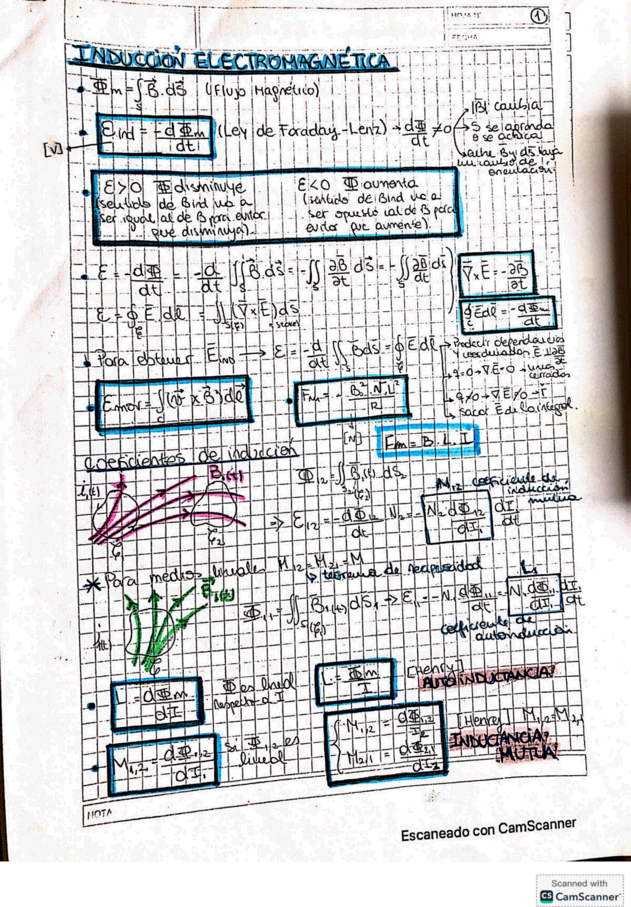 HOJA Nº ①
FECHA
INDUCCIÓN ELECTROMAGNÉTICA
• Φm = ∫s B⃗. dS⃗ (Flujo Magnético)
[V] Eind = -dΦm/dt (Ley de Faraday-Lenz) → dΦ/dt ≠ 0 → |B̄| cambia
→ S se agranda o se achica
→ entre B y dS haya un cambio de orientación
• E>0 Φ disminuye (sentido de Bind va a ser igual al de B para evitar que disminuya).
E<0 Φ aumenta (sentido de Bind va a ser opuesto al de B para evitar que aumente)
• E = -dΦ/dt = -d/dt ∬s B⃗.dS⃗ = -∬s ∂B⃗/∂t dS⃗ = -∬s ∂B⃗/∂t dS⃗
∇̄×Ē = -∂B̄/∂t
E = ∮ Ē.dl = ∬s(ℓ) (∇̄×Ē) dS⃗
∮ Ē dl = -dΦm/dt
• Para obtener Ēind → E = -d/dt ∬s BdS⃗ = ∮ Ē dl
→ Predecir dependencias y coordenadas Ē
→ sacar E de la integral.
• Emov = ∫ (v⃗ × B⃗) dl⃗
• Fm = - B₀². N.L²/R
[N]
Fm = B.L.I
Coeficientes de inducción
i₁(t) B₁(t)
ℓ₁ ℓ₂
Φ12 = ∬s₂(ℓ₂) B̄₁(t) dS₂
⇒ E12 = -dΦ12/dt N₂ = -N₂ dΦ12/dI₁ dI₁/dt
coeficiente de inducción mutua
* Para medios lineales M12 = M21 = M
↳ teorema de reciprocidad
ℓ
Φ11 = ∬s(ℓ₁) B̄₁(t) dS₁ → E11 = -N₁ dΦ11/dt = -N₁ dΦ11/dI₁ dI₁/dt
L₁
coeficiente de autoinducción
• L = dΦm/dI
Φ es lineal respecto a I
L = Φm/I
[Henry]
AUTOINDUCTANCIA
• M1,2 = dΦ1,2/dI₁
si Φ1,2 es lineal
M2,1 = dΦ2,1/dI₂
[Henry] M1,2 = M2,1
INDUCTANCIA MUTUA
NOTA
Escaneado con CamScanner
Scanned with
CS CamScanner